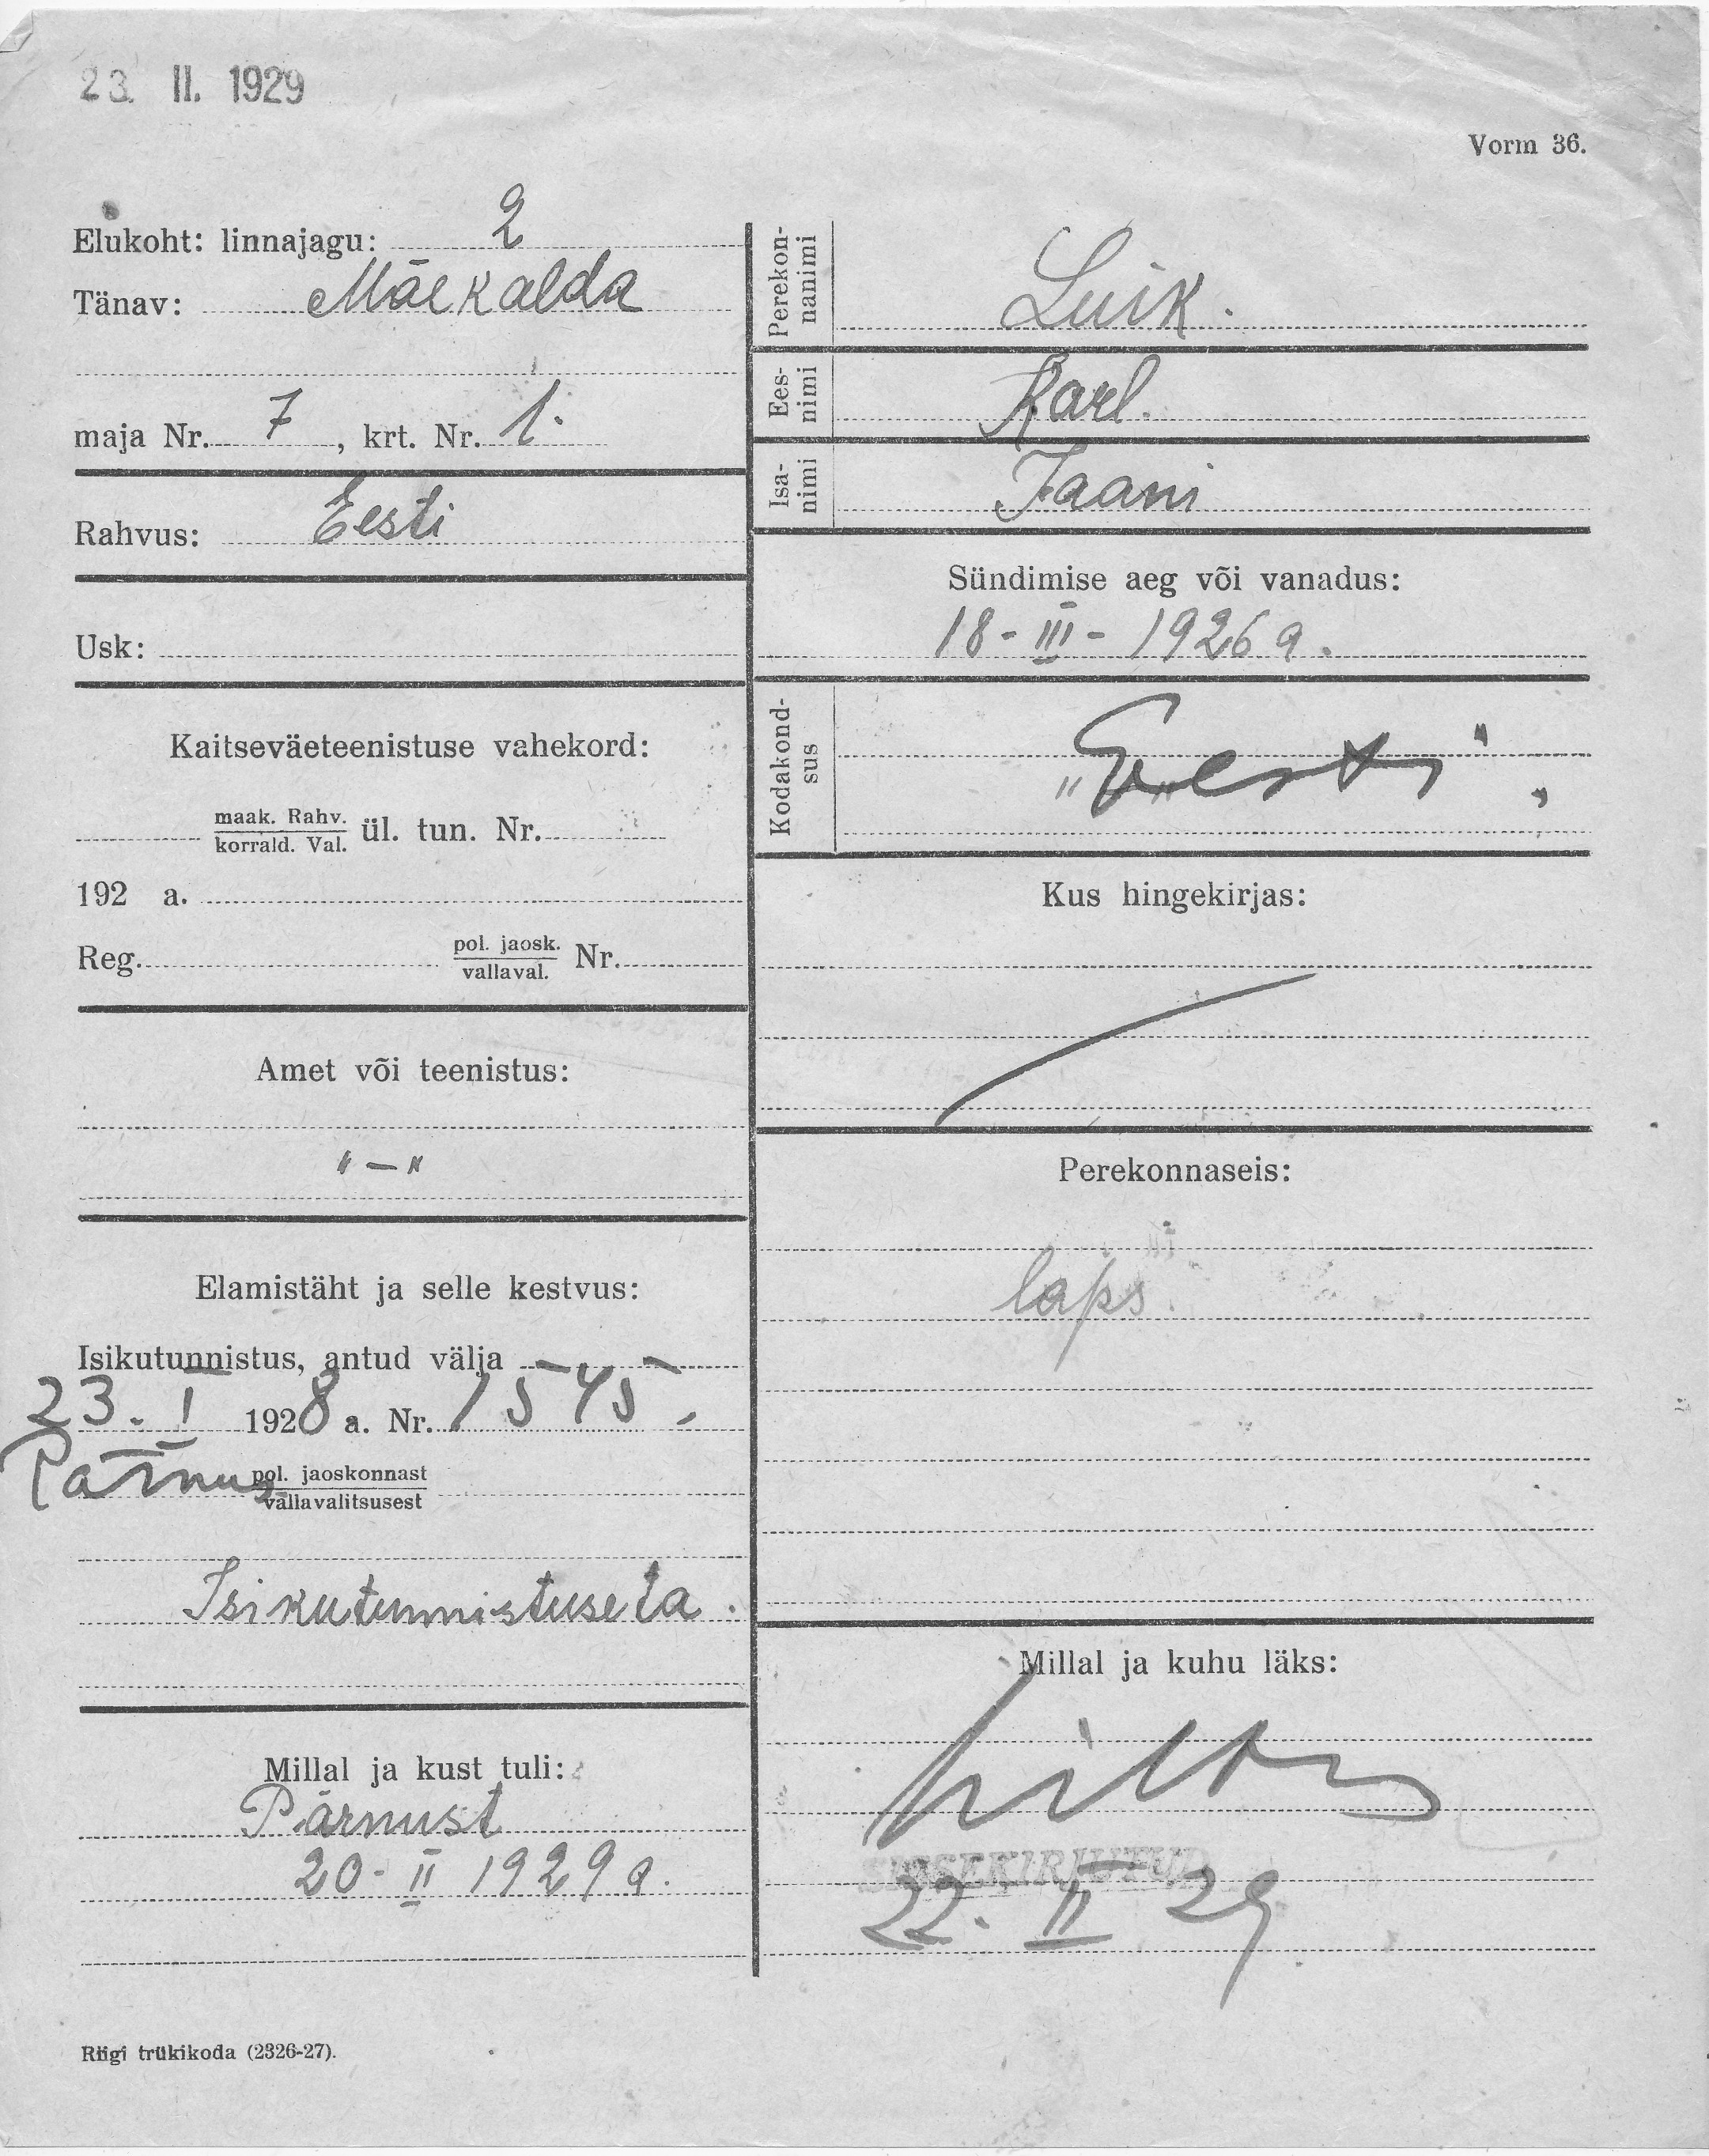 23. II. 1929
Vorm 36.
Elukoht: linnajagu: 2
Tänav: Mäekalda
maja Nr. 7, krt. Nr. 1.
Rahvus: Eesti
Usk:
Kaitseväeteenistuse vahekord:
maak. Rahv.
korrald. Val.
ül. tun. Nr.
192 a.
Reg. pol. jaosk. Nr.
vallaval.
Amet või teenistus:
" — "
Elamistäht ja selle kestvus:
Isikutunnistus, antud välja
23. I 1928 a. Nr. 1545.
Pärnus pol. jaoskonnast
vallavalitsusest
Isikutunnistuseta.
Millal ja kust tuli:
Pärnust
20 - II 1929 a.
Perekon-
nanimi
Luik.
Ees-
nimi
Karl.
Isa-
nimi
Jaani
Sündimise aeg või vanadus:
18 - III - 1926 a.
Kodakond-
sus
"Eesti"
Kus hingekirjas:
Perekonnaseis:
laps.
Millal ja kuhu läks:
SISSEKIRJUTUD
22. II 29
Riigi trükikoda (2326-27).